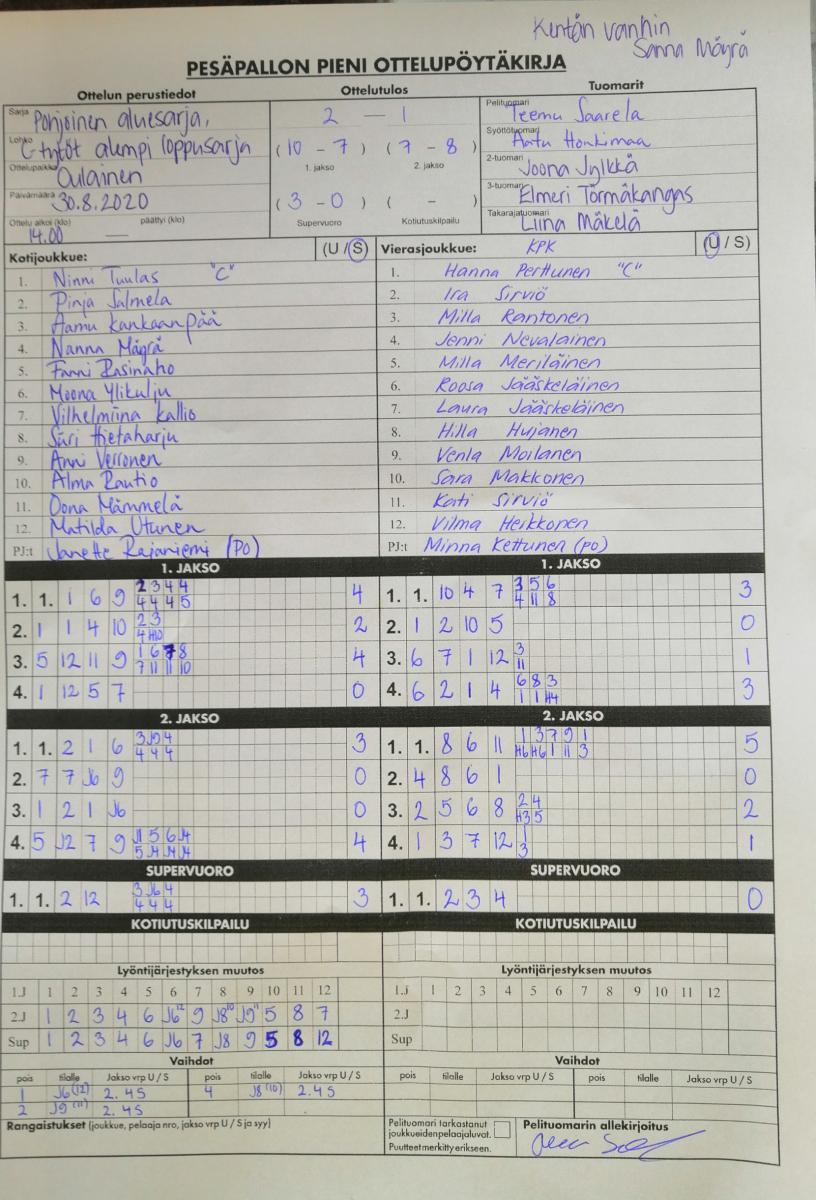 Kentän vanhin
Sanna Mäyrä
PESÄPALLON PIENI OTTELUPÖYTÄKIRJA
Ottelun perustiedot Ottelutulos Tuomarit
Sarja Pohjoinen aluesarja, 2 — 1 Pelituomari Teemu Saarela
Lohko C-tytöt alempi loppusarja (10 - 7) (7 - 8) Syöttötuomari Aatu Honkimaa
Ottelupaikka Oulainen 1. jakso 2. jakso 2-tuomari Joona Jylkkä
Päivämäärä 30.8.2020 (3 - 0) ( - ) 3-tuomari Elmeri Törmäkangas
Ottelu alkoi (klo) 14.00 päättyi (klo) — Supervuoro Kotiutuskilpailu Takarajatuomari Liina Mäkelä
Kotijoukkue: (U / S) Vierasjoukkue: KPK (U / S)
1. Ninni Tuulas "C" 1. Hanna Perttunen "C"
2. Pinja Salmela 2. Ira Sirviö
3. Aamu Kankaanpää 3. Milla Rantonen
4. Nanna Mäyrä 4. Jenni Nevalainen
5. Fanni Rasinaho 5. Milla Meriläinen
6. Moona Ylikulju 6. Roosa Jääskeläinen
7. Vilhelmiina Kallio 7. Laura Jääskeläinen
8. Siiri Hietaharju 8. Hilla Hujanen
9. Anni Verronen 9. Venla Moilanen
10. Alma Rautio 10. Sara Makkonen
11. Oona Mämmelä 11. Kati Sirviö
12. Matilda Utunen 12. Vilma Heikkonen
PJ:t Janette Rajaniemi (PO) PJ:t Minna Kettunen (po)
1. JAKSO 1. JAKSO
2 3 4 4 3 5 6
1. 1. 1 6 9 4 4 4 5 4 1. 1. 10 4 7 4 11 8 3
2 3
2. 1 1 4 10 4 H10 2 2. 1 2 10 5 0
1 6 7 8 3
3. 5 12 11 9 7 11 11 10 4 3. 6 7 1 12 11 1
6 8 3
4. 1 12 5 7 0 4. 6 2 1 4 1 1 H4 3
2. JAKSO 2. JAKSO
3 J9 4 1 3 7 9 1
1. 1. 2 1 6 4 4 4 3 1. 1. 8 6 11 H6 H6 1 11 3 5
2. 7 7 J6 9 0 2. 4 8 6 1 0
2 4
3. 1 2 1 J6 0 3. 2 5 6 8 H3 5 2
J1 5 6 J4 1
4. 5 J2 7 9 5 J4 J4 J4 4 4. 1 3 7 12 3 1
SUPERVUORO SUPERVUORO
3 J6 4
1. 1. 2 12 4 4 4 3 1. 1. 2 3 4 0
KOTIUTUSKILPAILU KOTIUTUSKILPAILU
Lyöntijärjestyksen muutos Lyöntijärjestyksen muutos
1.J 1 2 3 4 5 6 7 8 9 10 11 12 1.J 1 2 3 4 5 6 7 8 9 10 11 12
2.J 1 2 3 4 6 J6 12 9 J8 10 J9 11 5 8 7 2.J
Sup 1 2 3 4 6 J6 7 J8 9 5 8 12 Sup
Vaihdot Vaihdot
pois tilalle Jakso vrp U / S pois tilalle Jakso vrp U / S pois tilalle Jakso vrp U / S pois tilalle Jakso vrp U / S
1 J6 (12) 2.4S 4 J8 (10) 2.4S
2 J9 (11) 2.4S
Rangaistukset (joukkue, pelaaja nro, jakso vrp U / S ja syy) Pelituomari tarkastanut Pelituomarin allekirjoitus
joukkueidenpelaajaluvat.
Puutteet merkitty erikseen.